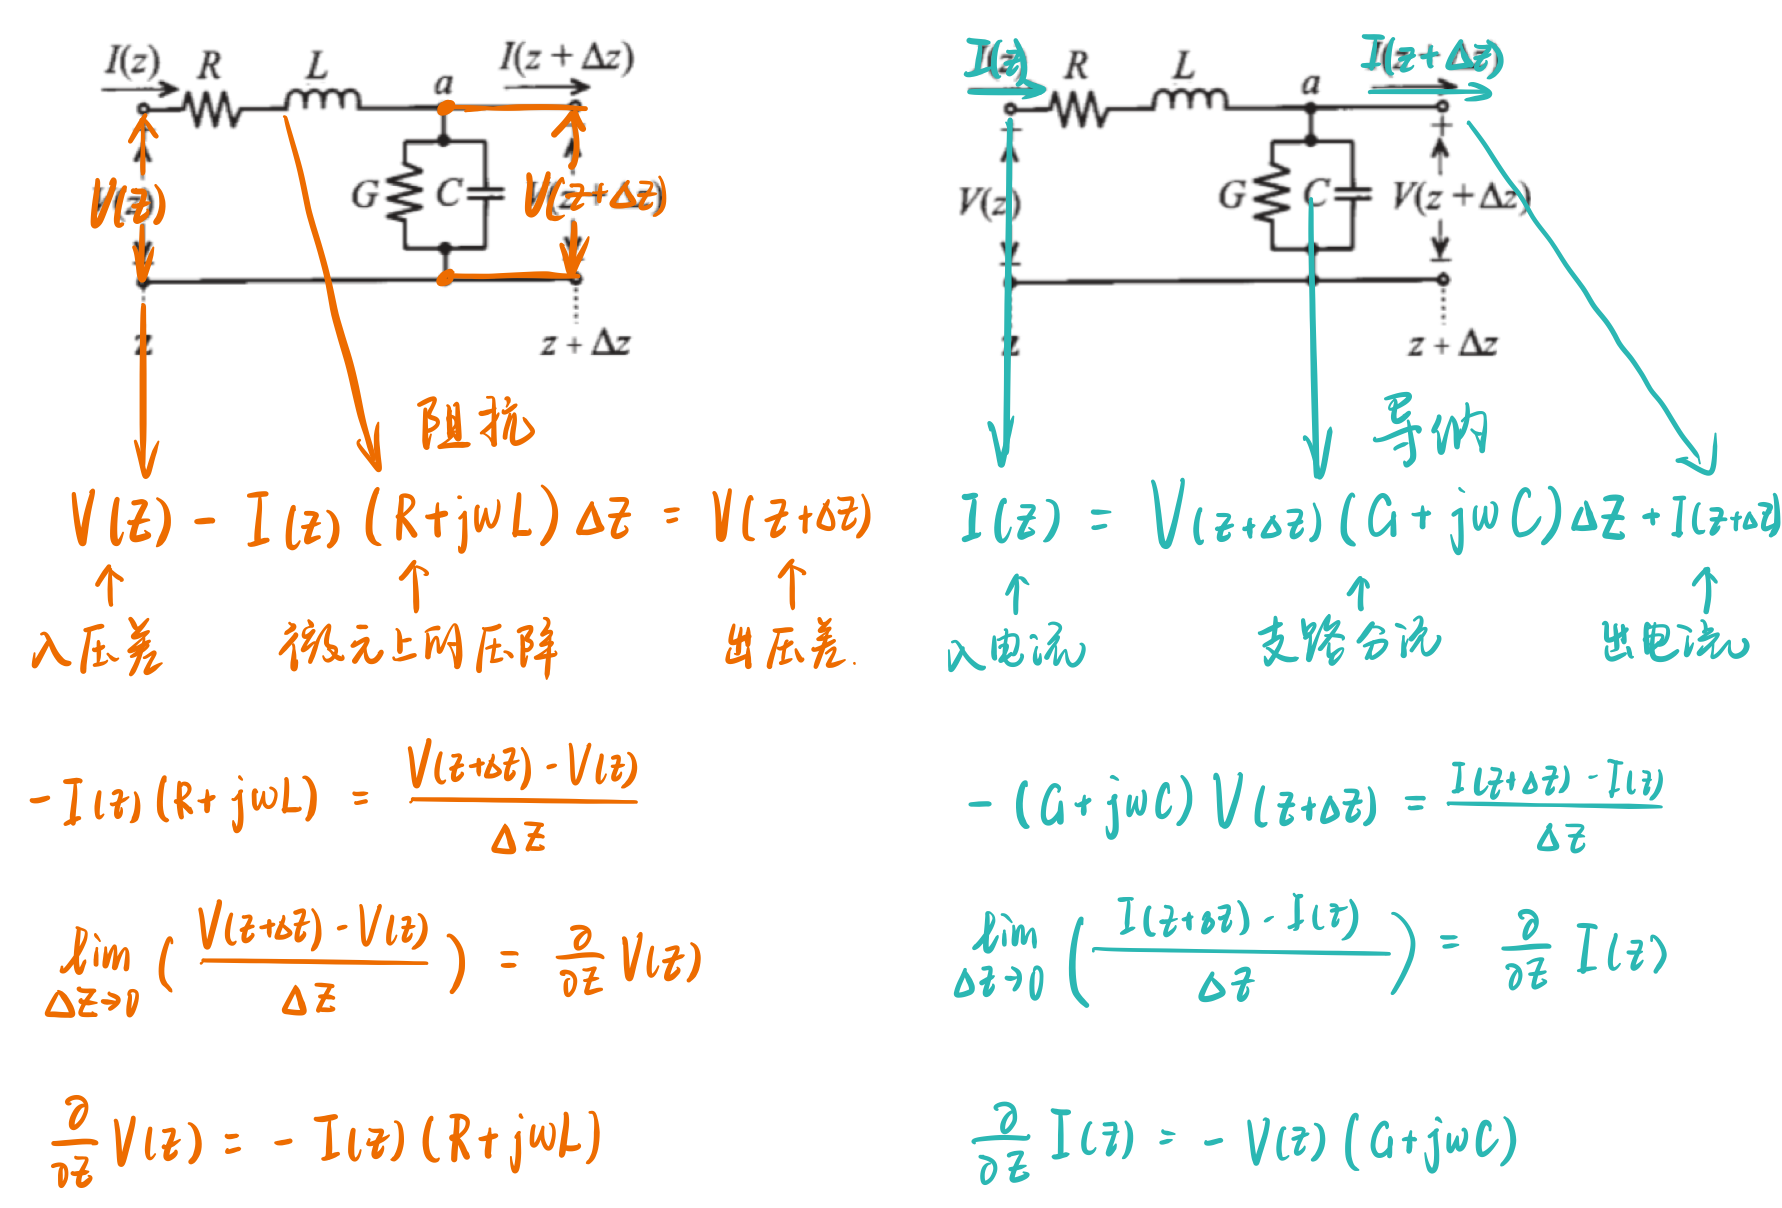 I(z) R L a I(z + Δz)
V(z) G C V(z+Δz)
z z + Δz
阻抗
V(z) - I(z) (R+jωL) Δz = V(z+Δz)
入压差 微元上的压降 出压差.
-I(z) (R+jωL) = \frac{V(z+Δz) - V(z)}{Δz}
\lim_{Δz→0} ( \frac{V(z+Δz) - V(z)}{Δz} ) = \frac{∂}{∂z} V(z)
\frac{∂}{∂z} V(z) = - I(z) (R+jωL)
I(z) R L a I(z+Δz)
V(z) G C V(z + Δz)
z z + Δz
导纳
I(z) = V(z+Δz) (G+jωC) Δz + I(z+Δz)
入电流 支路分流 出电流
- (G+jωC) V(z+Δz) = \frac{I(z+Δz) - I(z)}{Δz}
\lim_{Δz→0} ( \frac{I(z+Δz) - I(z)}{Δz} ) = \frac{∂}{∂z} I(z)
\frac{∂}{∂z} I(z) = - V(z) (G+jωC)